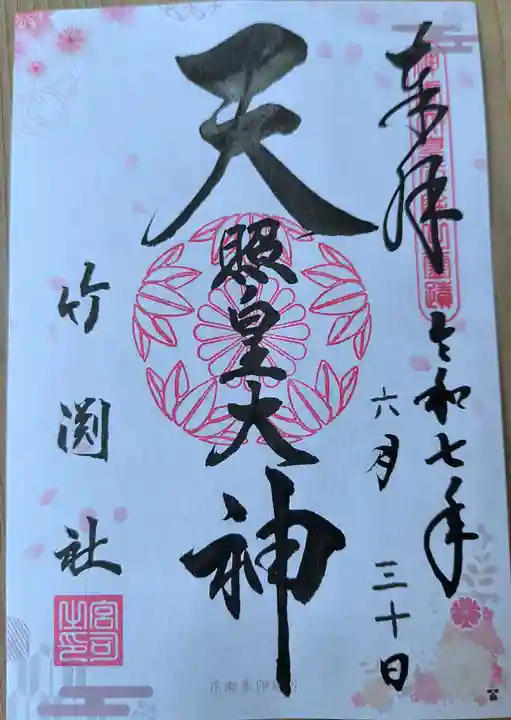 奉拝
令和七年
六月三十日
天照皇大神
竹渕社
宮司之印